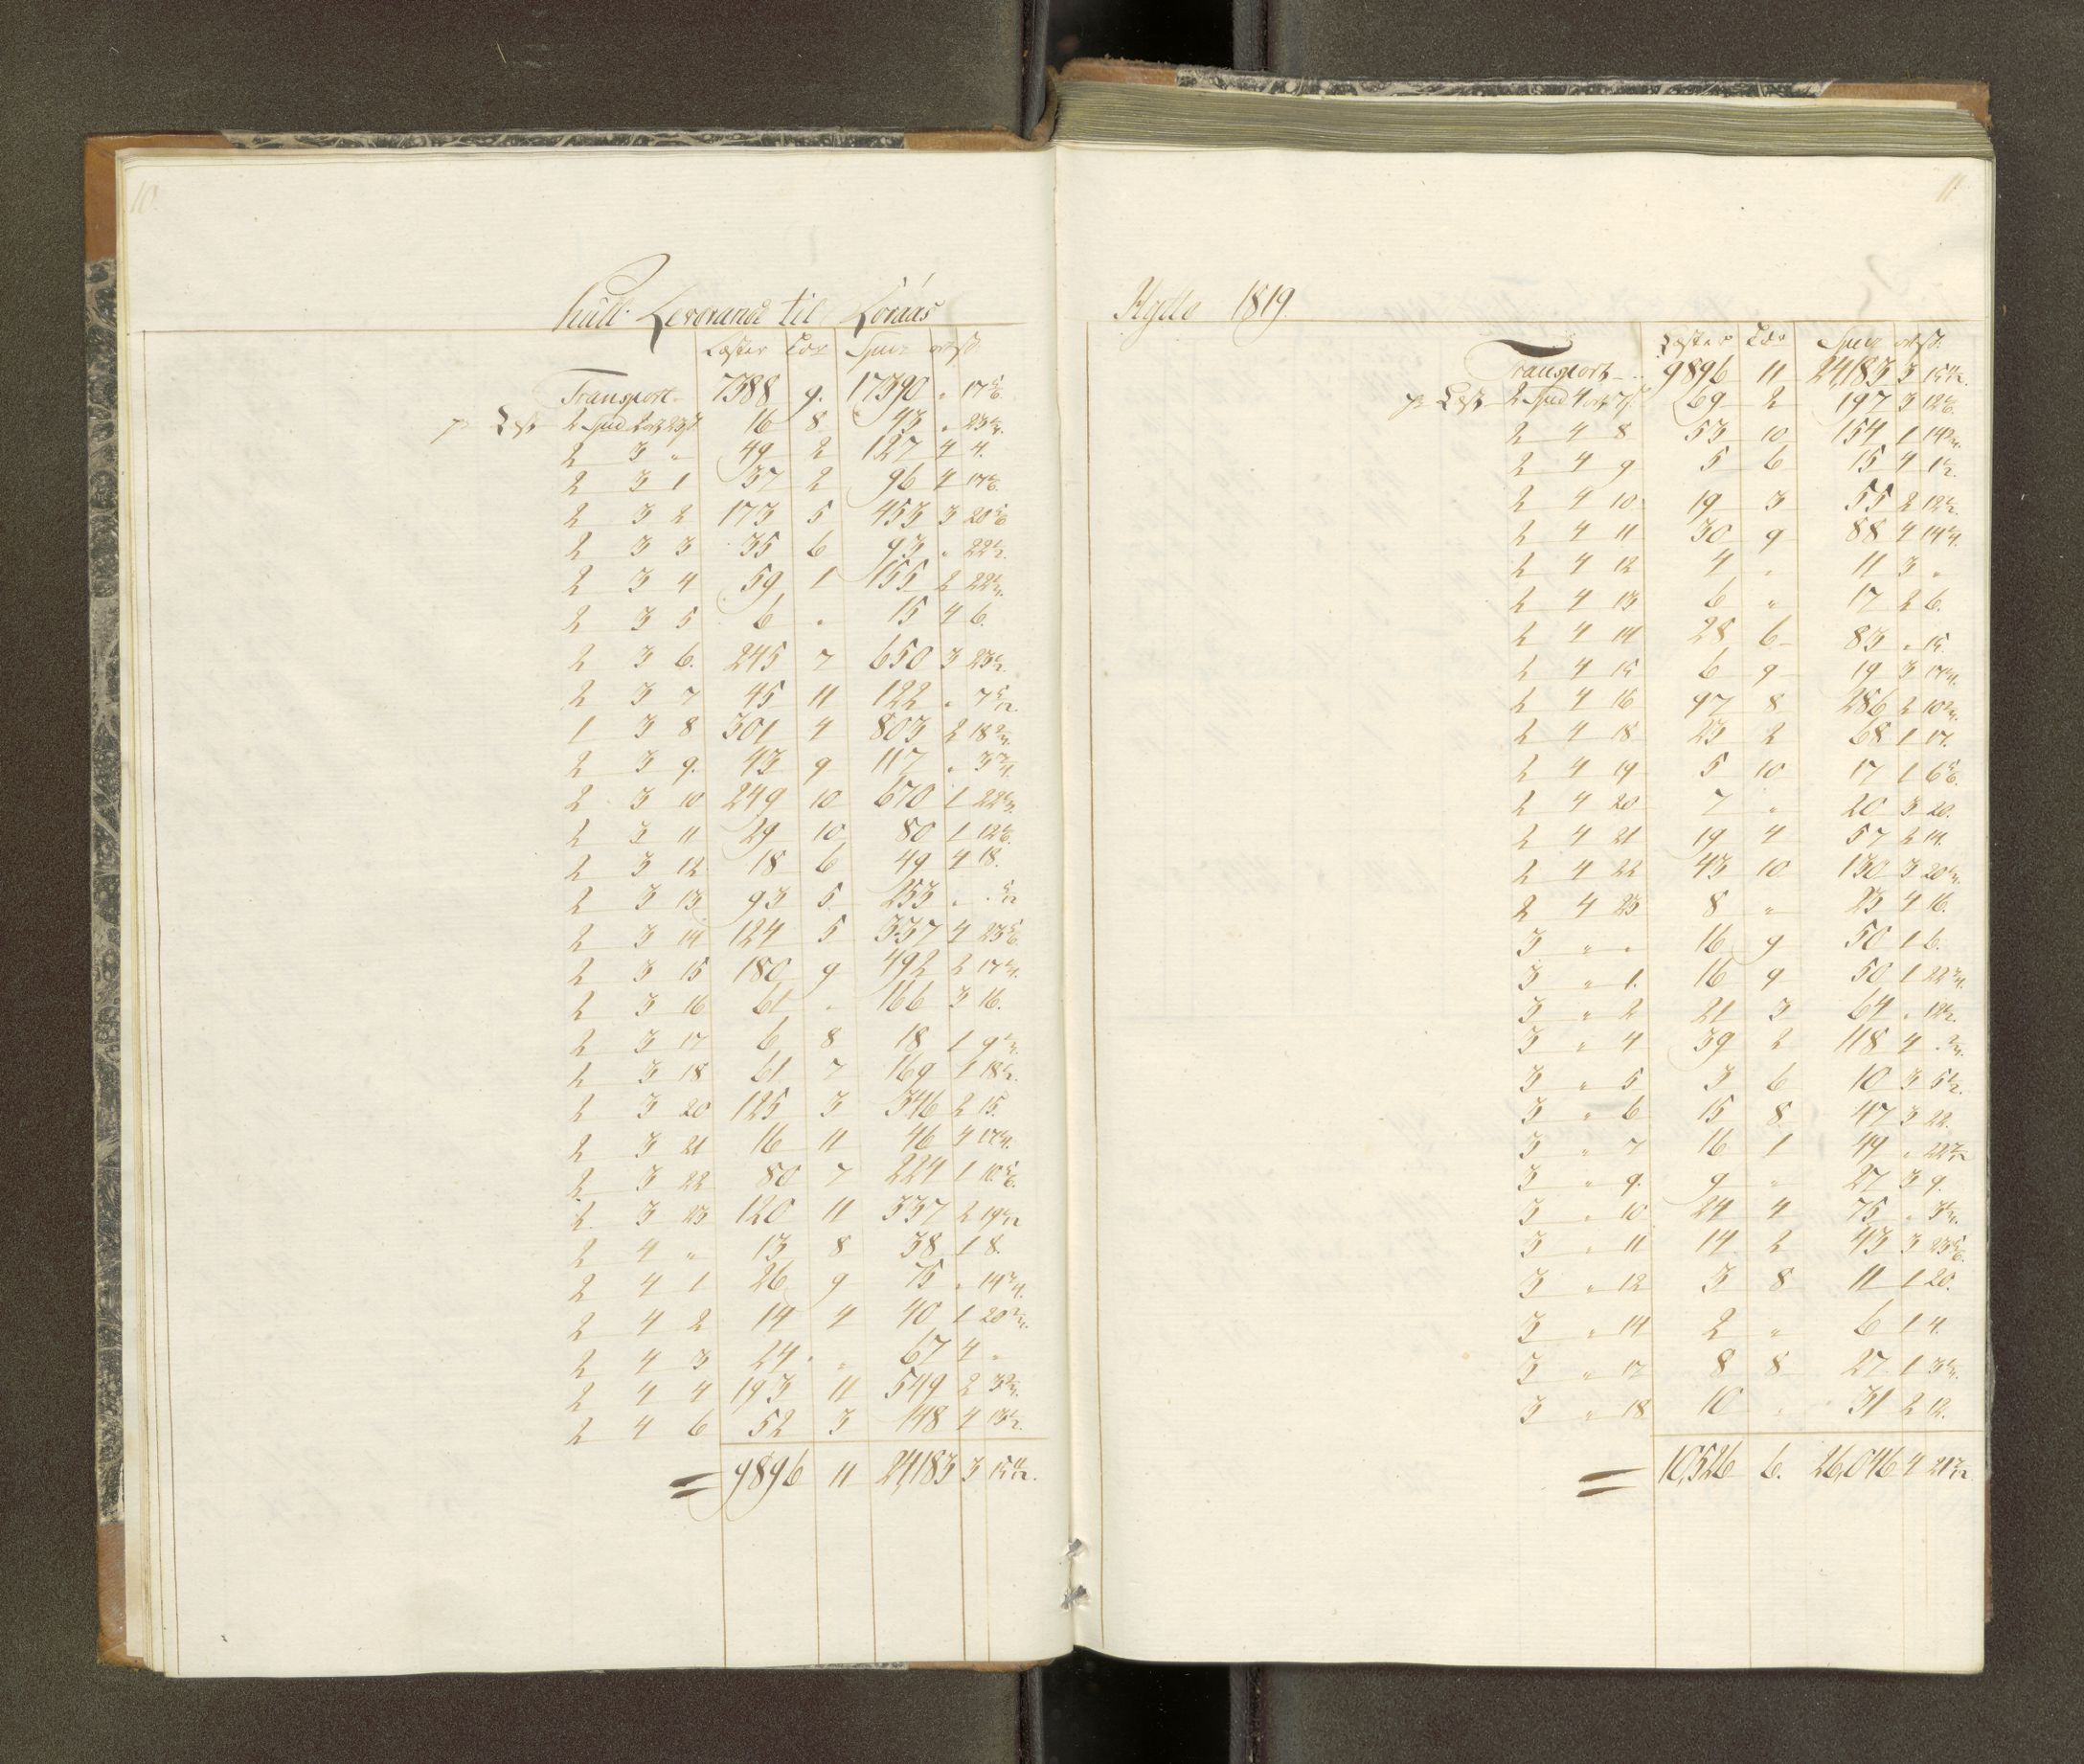 10.
Kull Leverance til Röraas
Læster Tdr Spec ort ß
Transport 7388 9. 17390 " 17 5/6.
pr Læst 2 Spd 2 ort 23 ß 16 8 43 "
2 3 " 49 2 127 4 4.
2 3 1 37 2 96 4
2 3 2 173 5 453 3 20 5/6
2 3 3 35 6 93 " 22 1/2.
2 3 4 59 1 155 2
2 3 5 6 " 15 4 6.
2 3 6. 245 7 650 3 23 1/2.
2 3 7 45 11 122 " 7 5/12.
1 3 8 301 4 803 2 18 2/3.
2 3 9. 43 9 117 " 3 3/4.
2 3 10 249 10 670 1
2 3 11 29 10 80 1
2 3 12 18 6 49 4 18.
2 3 13 93 5 253 " " 5/12
2 3 14 124 5 337 4
2 3 15 180 9 492 2
2 3 16 61 " 166 3 16.
2 3 17 6 8 18 1
2 3 18 61 7 169 1 18 1/2.
2 3 20 125 3 346 2 15.
2 3 21 16 11 46 4
2 3 22 80 7 224 1
2 3 23 120 11 337 2
2 4 " 13 8 38 1 8.
2 4 1 26 9 75 " 14 3/4.
2 4 2 14 4 40 1 20 2/3.
2 4 3 24 " 67 4 "
2 4 4 193 11 549 2 3 2/3.
2 4 6 52 3 148 4 13 1/2.
= 9896 11 24,183 3
11
Hytte 1819
Læster Tdr Spec ort ß.
Transport 9896 11 24,183 3
pr Læst 2 Spd 4 ort 7 ß. 69 2 197 3
2 4 8 53 10 154 1 14 2/3.
2 4 9 5 6 15 4 1 1/2.
2 4 10 19 3 55 2 12 1/2.
2 4 11 30 9 88 4 14 1/4.
2 4 12 4 " 11 3 "
2 4 13 6 " 17 2 6.
2 4 14 28 6 83 " 15.
2 4 15 6 9 19 3
2 4 16 97 8 286 2 10 2/3.
2 4 18 23 2 68 1 17.
2 4 19 5 10 17 1 6 5/6.
2 4 20 7 " 20 3 20.
2 4 21 19 4 57 2 14.
2 4 22 43 10 130 3
2 4 23 8 " 23 4 16.
3 " " 16 9 50 1 6.
3 " 1. 16 9 50 1 22 3/4.
3 " 2 21 3 64 " 18 1/2.
3 " 4 39 2 118 4 " 2/3.
3 " 5 3 6 10 3 5 1/2.
3 " 6 15 8 47 3 22.
3 " 7 16 1 49 " 22 7/12
3 " 9. 9 " 27 3 9.
3 " 10 24 4 75 " 3 1/3.
3 " 11 14 2 43 3 23 5/6.
3 " 12 3 8 11 1 20.
3 " 14 2 " 6 1 4.
3 " 17 8 8 27 1 3 1/3.
3 " 18 10 " 31 2 12.
= 10,526 6. 26,046 4